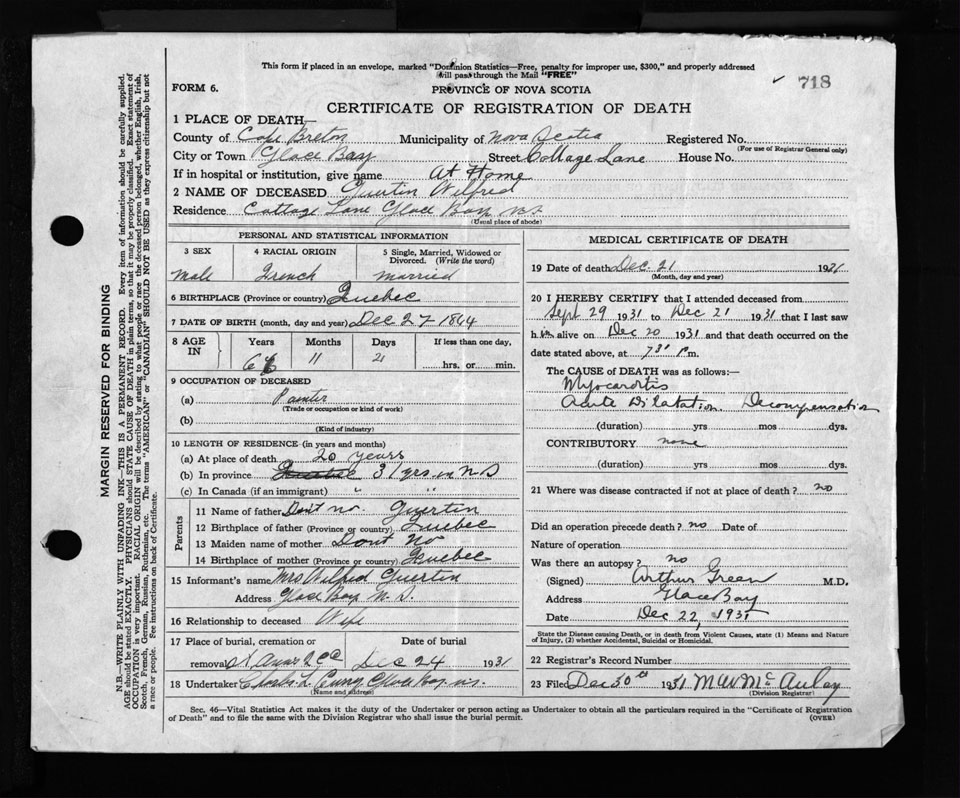 This form if placed in an envelope, marked "Dominion Statistics—Free, penalty for improper use, $300," and properly addressed
will pass through the Mail "FREE"
✓ 718
FORM 6.
PROVINCE OF NOVA SCOTIA
CERTIFICATE OF REGISTRATION OF DEATH
1 PLACE OF DEATH—
County of Cape Breton Municipality of Nova Scotia Registered No.
(For use of Registrar General only)
City or Town Glace Bay Street Cottage Lane House No.
If in hospital or institution, give name At Home
2 NAME OF DECEASED Guertin Wilfred
Residence Cottage Lane Glace Bay N.S.
(Usual place of abode)
PERSONAL AND STATISTICAL INFORMATION
3 SEX 4 RACIAL ORIGIN 5 Single, Married, Widowed or
Divorced. (Write the word)
Male French Married
6 BIRTHPLACE (Province or country) Quebec
7 DATE OF BIRTH (month, day and year) Dec 27 1864
8 AGE IN Years Months Days If less than one day,
11 hrs. or min.
9 OCCUPATION OF DECEASED
(a) Painter
(Trade or occupation or kind of work)
(b)
(Kind of industry)
10 LENGTH OF RESIDENCE (in years and months)
(a) At place of death 20 years
(b) In province Quebec 31 yrs. in N S
(c) In Canada (if an immigrant) " "
Parents
11 Name of father Don't no. Guertin
12 Birthplace of father (Province or country) Quebec
13 Maiden name of mother Dont No
14 Birthplace of mother (Province or country) Quebec
15 Informant's name Mrs Wilfred Guertin
Address Glace Bay N.S.
16 Relationship to deceased Wife
17 Place of burial, cremation or Date of burial
removal Dec 24 1931
18 Undertaker Charles L. Curry Glace Bay N.S.
(Name and address)
MEDICAL CERTIFICATE OF DEATH
19 Date of death Dec. 21 1931
(Month, day and year)
20 I HEREBY CERTIFY that I attended deceased from
Sept 29 1931 to Dec 21 1931 that I last saw
him alive on Dec 20 1931 and that death occurred on the
date stated above, at 7 30 P.m.
The CAUSE of DEATH was as follows:—
Myocarditis
Acute Dilatation. Decompensation
(duration) yrs mos dys.
CONTRIBUTORY none
(duration) yrs mos dys.
21 Where was disease contracted if not at place of death? no
Did an operation precede death? no Date of
Nature of operation
Was there an autopsy? no
(Signed) Arthur Green M.D.
Address Glace Bay
Date Dec 22, 1931
State the Disease causing Death, or in death from Violent Causes, state (1) Means and Nature
of Injury, (2) whether Accidental, Suicidal or Homicidal.
22 Registrar's Record Number
23 Filed Dec 30th 1931 M W McAuley
(Division Registrar)
Sec. 46—Vital Statistics Act makes it the duty of the Undertaker or person acting as Undertaker to obtain all the particulars required in the "Certificate of Registration
of Death" and to file the same with the Division Registrar who shall issue the burial permit. (OVER)
MARGIN RESERVED FOR BINDING
N.B.—WRITE PLAINLY WITH UNFADING INK—THIS IS A PERMANENT RECORD. Every item of information should be carefully supplied.
AGE should be stated EXACTLY. PHYSICIANS should STATE CAUSE OF DEATH in plain terms, so that it may be properly classified. Exact statement of
OCCUPATION is very important. RACIAL ORIGIN will be described by stating to what people or race the deceased person belonged, whether English, Irish,
Scotch, French, German, Russian, Ruthenian, etc. The terms "AMERICAN" or "CANADIAN" SHOULD NOT BE USED as they express citizenship but not
a race or people. Fee instructions on back of Certificate.